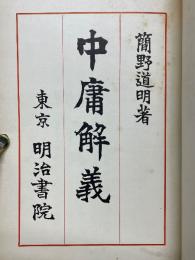 簡野道明著
中庸解義
東京 明治書院